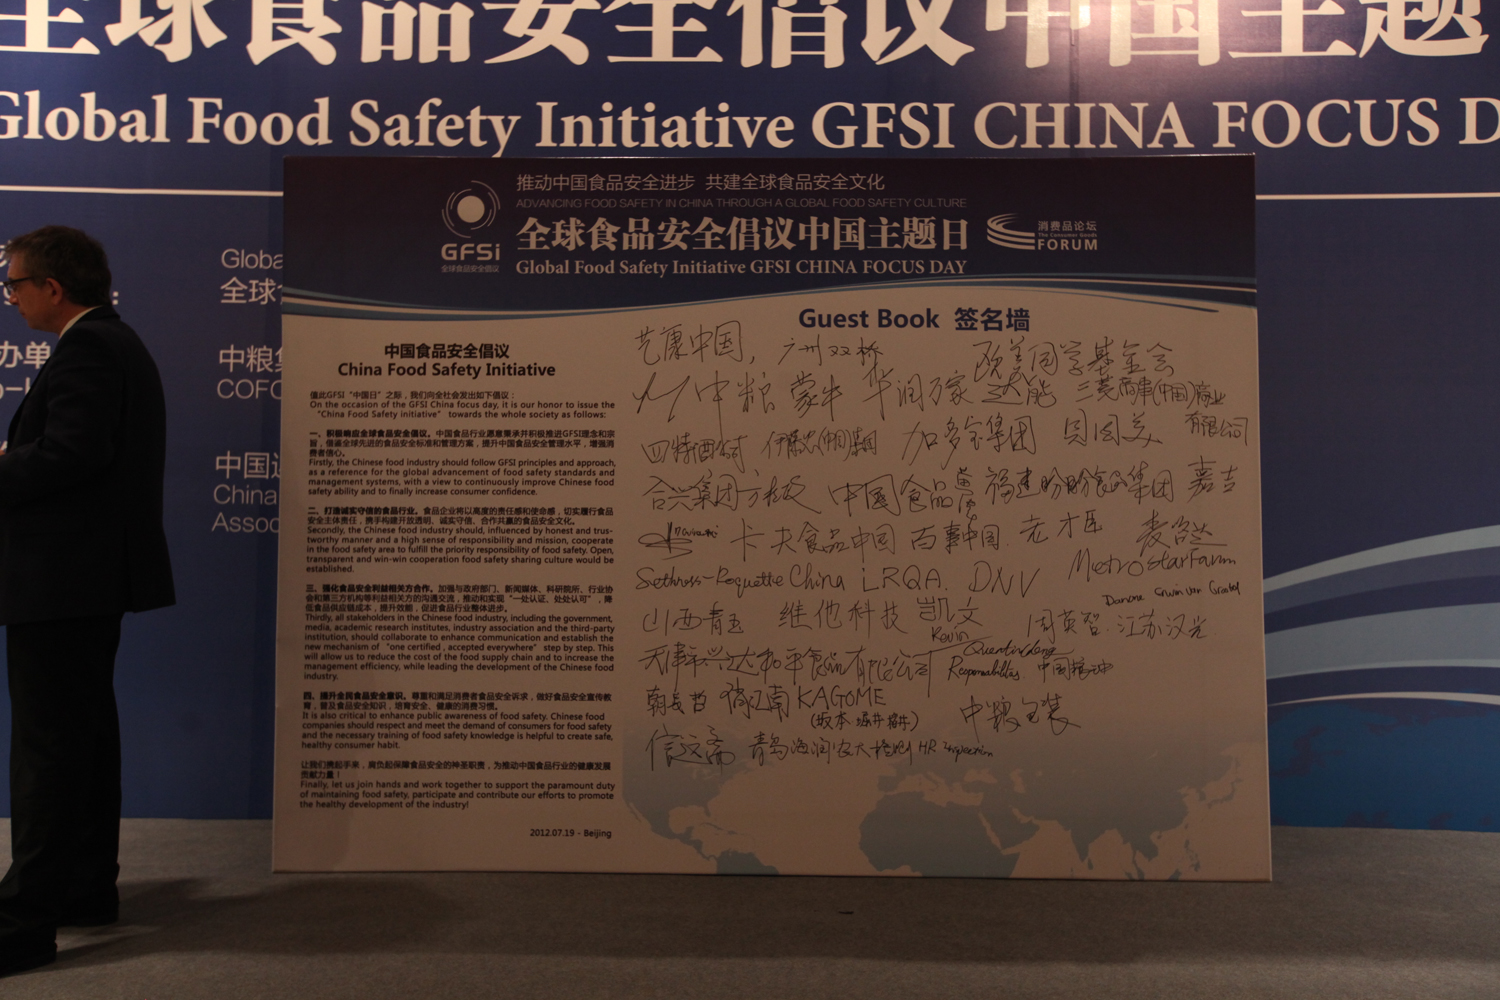 全球食品安全倡议中国主题
Global Food Safety Initiative GFSI CHINA FOCUS D
Globa
全球
办单
中粮集
COFC
中国
China
Assoc
推动中国食品安全进步 共建全球食品安全文化
ADVANCING FOOD SAFETY IN CHINA THROUGH A GLOBAL FOOD SAFETY CULTURE
GFSi
全球食品安全倡议
全球食品安全倡议中国主题日
Global Food Safety Initiative GFSI CHINA FOCUS DAY
消费品论坛
The Consumer Goods
FORUM
中国食品安全倡议
China Food Safety Initiative
值此GFSI“中国日”之际，我们向全社会发出如下倡议：
On the occasion of the GFSI China focus day, it is our honor to issue the
“China Food Safety initiative” towards the whole society as follows:
一、积极响应全球食品安全倡议。中国食品行业愿意秉承并积极推进GFSI理念和宗
旨，借鉴全球先进的食品安全标准和管理方案，提升中国食品安全管理水平，增强消
费者信心。
Firstly, the Chinese food industry should follow GFSI principles and approach,
as a reference for the global advancement of food safety standards and
management systems, with a view to continuously improve Chinese food
safety ability and to finally increase consumer confidence.
二、打造诚实守信的食品行业。食品企业将以高度的责任感和使命感，切实履行食品
安全主体责任，携手构建开放透明、诚实守信、合作共赢的食品安全文化。
Secondly, the Chinese food industry should, influenced by honest and trust-
worthy manner and a high sense of responsibility and mission, cooperate
in the food safety area to fulfill the priority responsibility of food safety. Open,
transparent and win-win cooperation food safety sharing culture would be
established.
三、强化食品安全利益相关方合作。加强与政府部门、新闻媒体、科研院所、行业协
会和第三方机构等利益相关方的沟通交流，推动和实现“一处认证、处处认可”，降
低食品供应链成本，提升效能，促进食品行业整体进步。
Thirdly, all stakeholders in the Chinese food industry, including the government,
media, academic research institutes, industry association and the third-party
institution, should collaborate to enhance communication and establish the
new mechanism of “one certified , accepted everywhere” step by step. This
will allow us to reduce the cost of the food supply chain and to increase the
management efficiency, while leading the development of the Chinese food
industry.
四、提升全民食品安全意识。尊重和满足消费者食品安全诉求，做好食品安全宣传教
育，普及食品安全知识，培育安全、健康的消费习惯。
It is also critical to enhance public awareness of food safety. Chinese food
companies should respect and meet the demand of consumers for food safety
and the necessary training of food safety knowledge is helpful to create safe,
healthy consumer habit.
让我们携起手来，肩负起保障食品安全的神圣职责，为推动中国食品行业的健康发展
贡献力量！
Finally, let us join hands and work together to support the paramount duty
of maintaining food safety, participate and contribute our efforts to promote
the healthy development of the industry!
2012.07.19 - Beijing
Guest Book 签名墙
艺康中国， 广州双桥 欧美同学基金会
中粮 蒙牛 华润万家 达能 三菱商事(中国)商业
有限公司
四特酒 加多宝集团 贝因美
合兴集团 中国食品 福建盼盼食品集团 嘉吉
卡夫食品中国 百事中国 老才臣 麦德龙
Metro Star Farm
Sethness-Roquette China LRQA. DNV
Danone
山西 维他科技 凯文 周英智 江苏汉光
Kevin
天津 和平食品有限公司
Responsabilites 中国
朝 江南 KAGOME
(坂本 堀井)
中粮包装
信远斋 青岛海润农大检测 HR Inspection